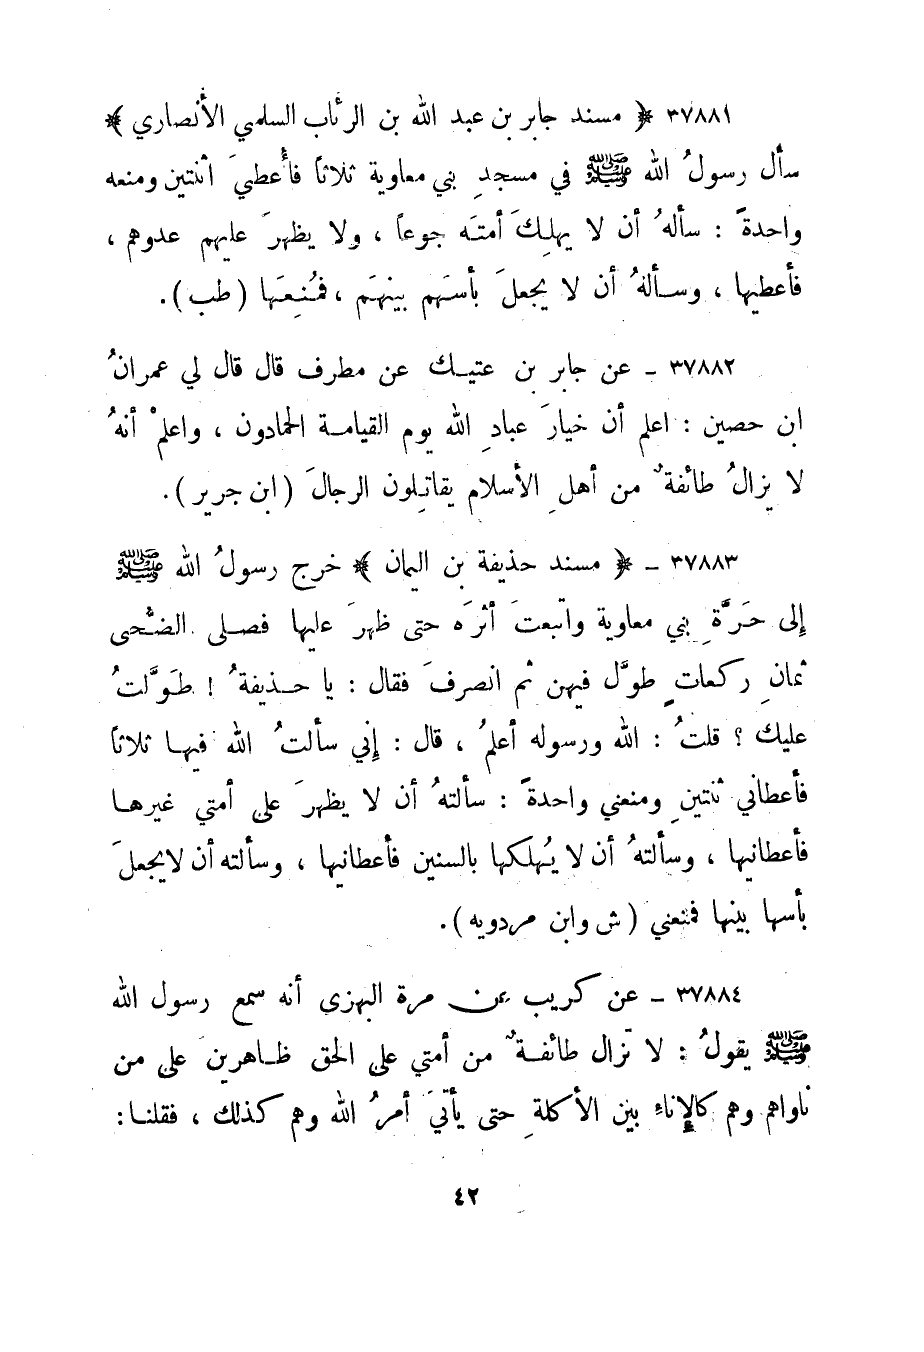 ٣٧٨٨١ ﴿ مسند جابر بن عبد الله بن الرئاب السلمي الأنصاري ﴾
سأل رسولُ الله ﷺ في مسجدِ بني معاوية ثلاثاً فأُعطيَ اثنتين ومنعه
واحدةً : سألهُ أن لا يهلكَ أمتَه جوعاً ، ولا يظهرَ عليهم عدوهم ،
فأعطيها ، وسألهُ أن لا يجعلَ بأسَهم بينهَم ، فمُنِعَها ( طب ) .
٣٧٨٨٢ - عن جابر بن عتيك عن مطرف قال قال لي عمرانُ
ابن حصين : اعلم أن خيارَ عبادِ الله يوم القيامة الحمادون ، واعلمْ أنهُ
لا يزالُ طائفةٌ من أهلِ الأسلام يقاتلون الرجالَ ( ابن جرير ) .
٣٧٨٨٣ - ﴿ مسند حذيفة بن اليمان ﴾ خرج رسولُ الله ﷺ
إلى حَرَّةِ بني معاوية واتبعتَ أثرَه حتى ظهرَ عليها فصلى الضُّحى
ثمانِ ركعاتٍ طوَّل فيهن ثم انصرفَ فقال : يا حذيفةُ ! طَوَّلتُ
عليك ؟ قلتُ : الله ورسوله أعلمُ ، قال : إني سألتُ الله فيها ثلاثاً
فأعطاني ثنتينِ ومنعني واحدةً : سألتهُ أن لا يظهرَ على أمتي غيرها
فأعطانيها ، وسألتهُ أن لا يُهلكها بالسنين فأعطانيها ، وسألته أن لايجعلَ
بأسها بينها فمنعني ( ش وابن مردويه ) .
٣٧٨٨٤ - عن كريب عن مرة البهزى أنه سمع رسول الله
ﷺ يقولُ : لا تزال طائفةٌ من أمتي على الحق ظاهرينَ على من
ناواهم وهم كالإناءِ بين الأكلةِ حتى يأتيَ أمرُ الله وهم كذلك ، فقلنا :
٤٢